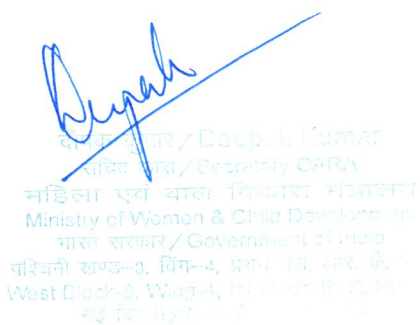 Deepak
दीपक कुमार/Deepak Kumar
सचिव कारा/Secretary CARA
महिला एवं बाल विकास मंत्रालय
Ministry of Women & Child Developmen
भारत सरकार/Government of India
पश्चिमी खण्ड-8, विंग-4, प्रथम तल, आर. के.
West Block-8, Wing-4, R. K.
नई दिल्ली/